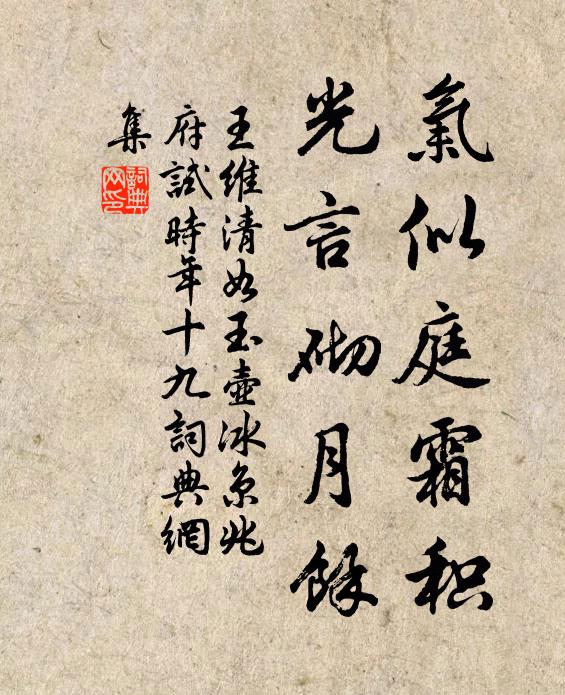 氣似庭霜积
光言砌月餘
王維清如玉壺冰京兆
府試時年十九詞典網
集
詞典
网印